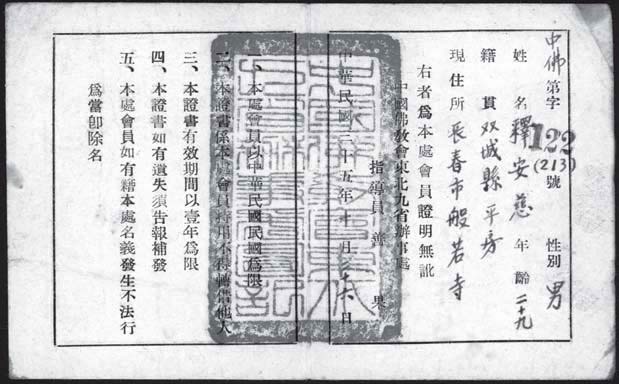 中佛第字122號
(213)
性別 男
姓名 釋安慈 年齡 二十九
籍貫 双城縣平房
現住所 長春市般若寺
右者爲本處會員證明無訛
中國佛教會東北九省辦事處
指導員 善果
中華民國三十五年十月 日
一、本處會員以中華民國民國爲限
二、本證書係本處會員持用不得轉借他人
三、本證書有效期間以壹年爲限
四、本證書如有遺失須告報補發
五、本處會員如有藉本處名義發生不法行
爲當卽除名